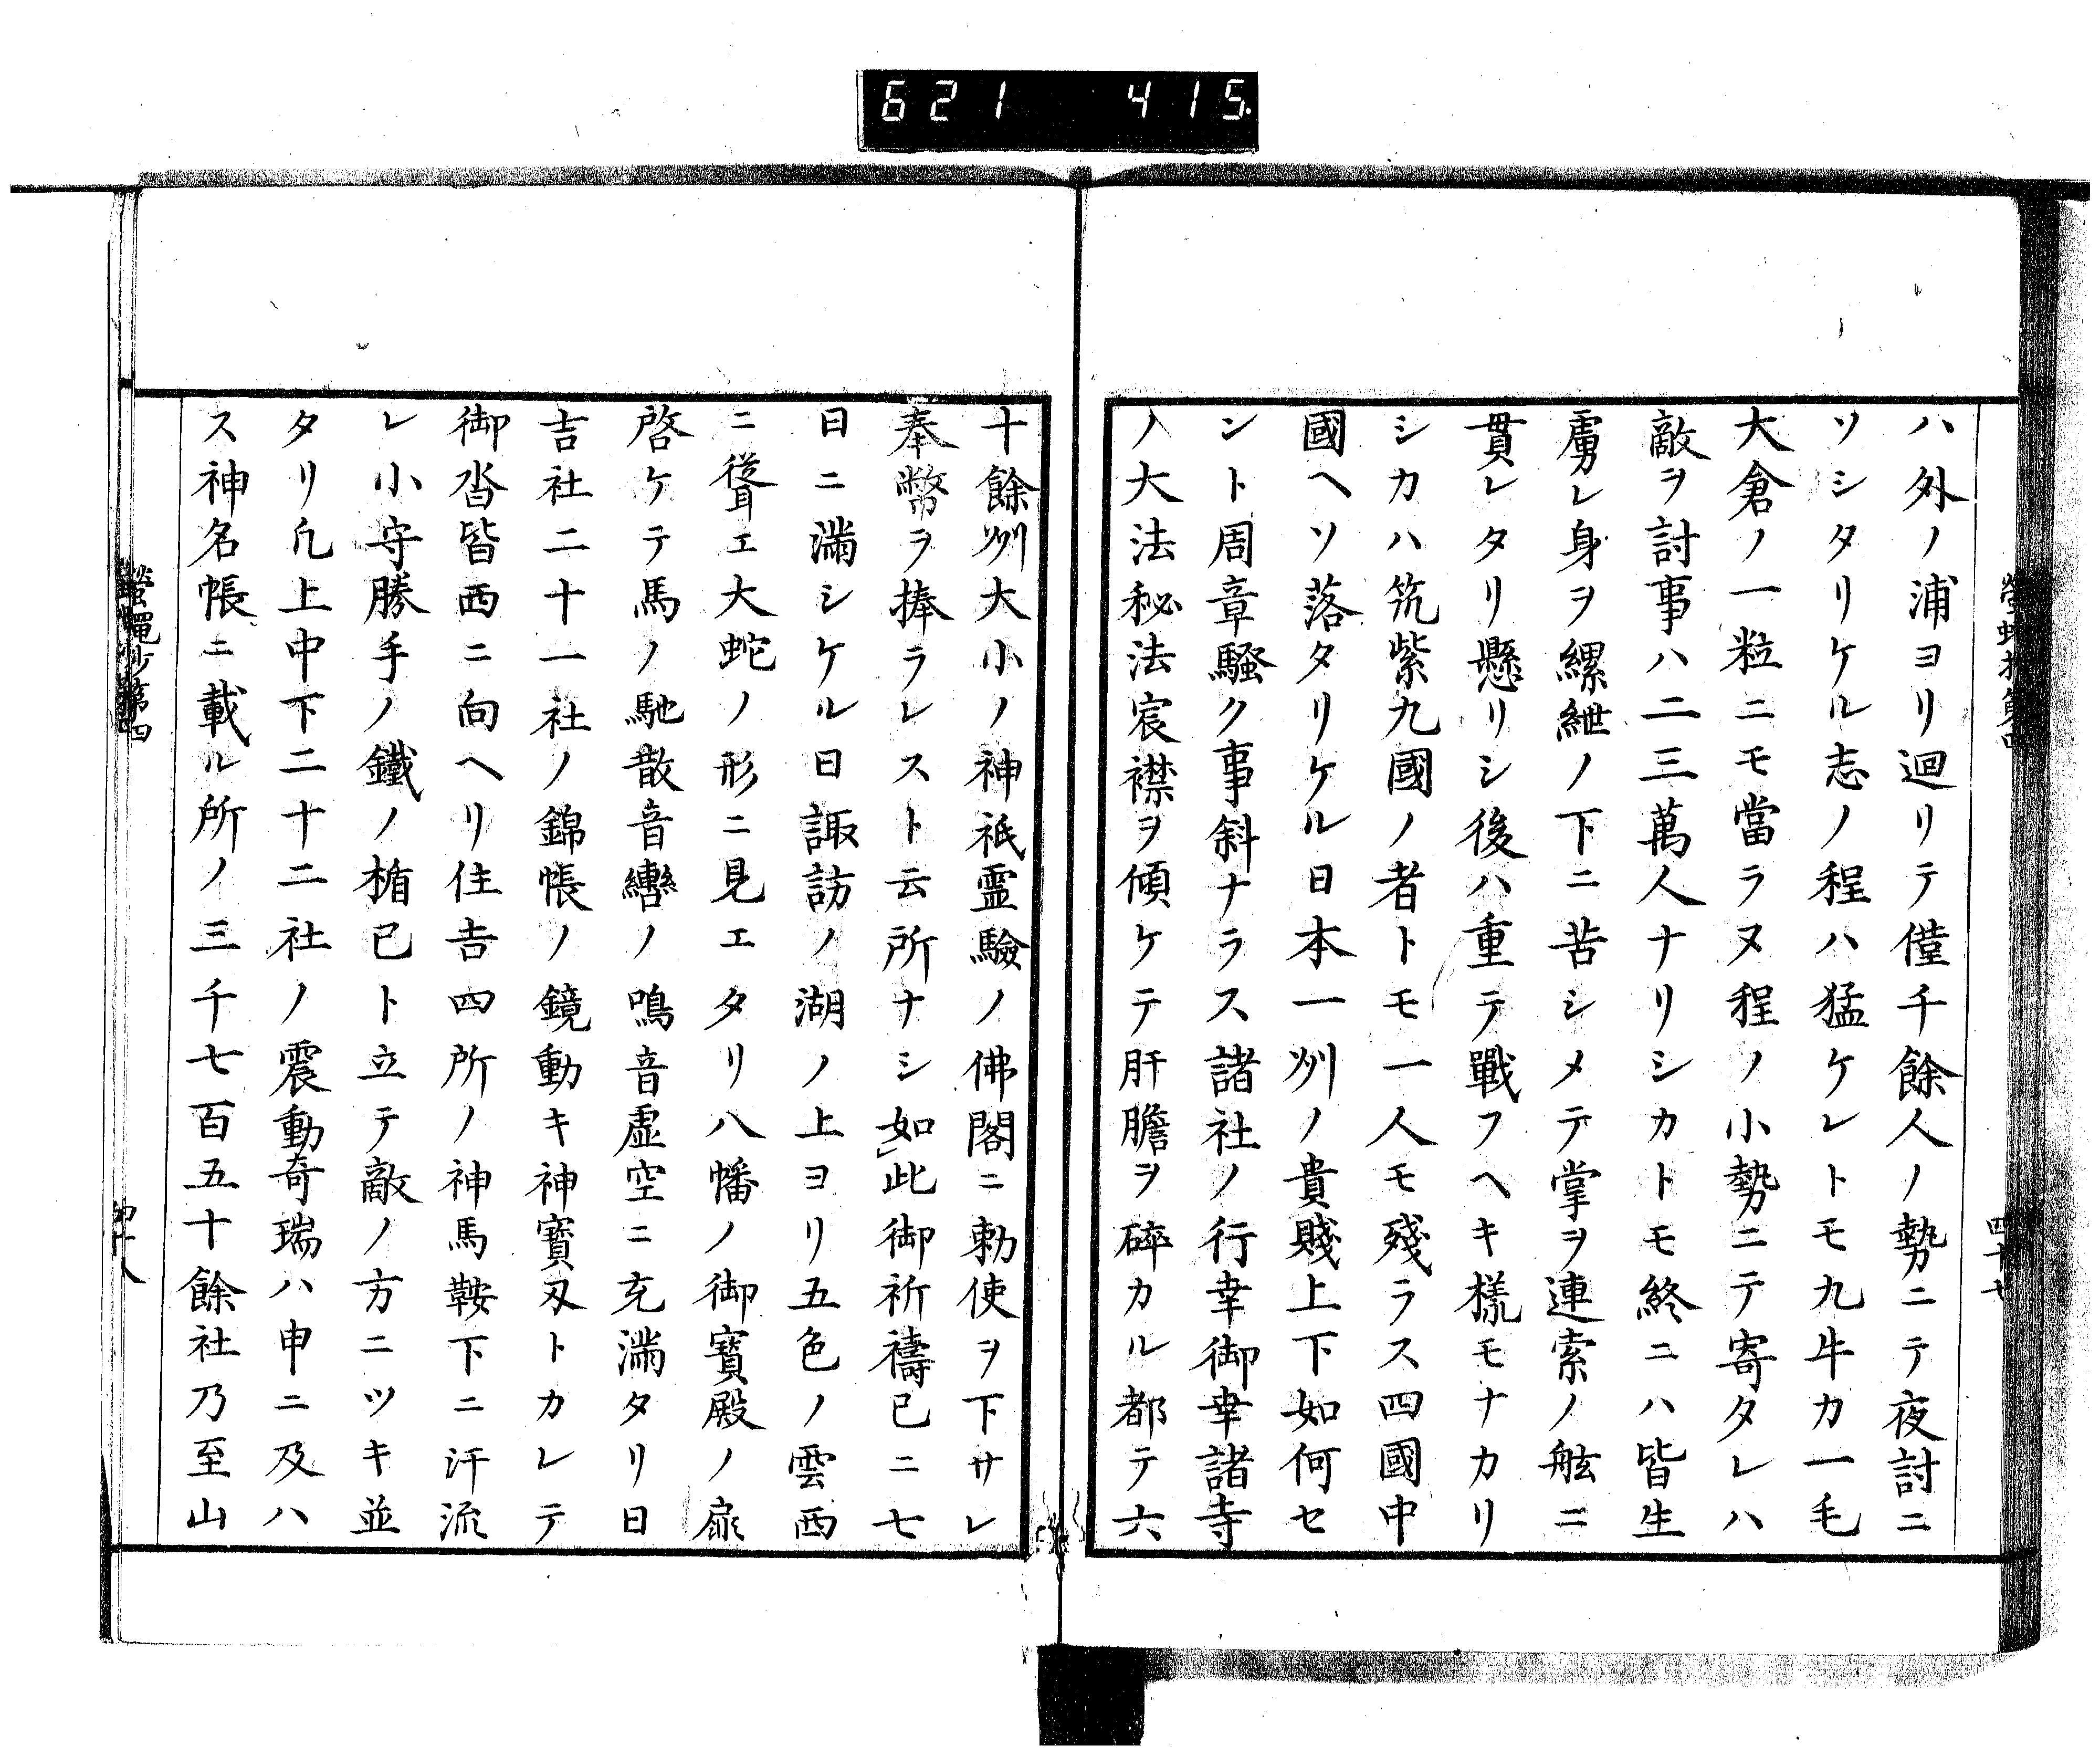 621 415
ハ外ノ浦ヨリ迴リテ僅千餘人ノ勢ニテ夜討ニ
ソシタリケル志ノ程ハ猛ケレトモ九牛カ一毛
大倉ノ一粒ニモ當ラヌ程ノ小勢ニテ寄タレハ
敵ヲ討事ハ二三萬人ナリシカトモ終ニハ皆生
虜レ身ヲ縲紲ノ下ニ苦シメテ掌ヲ連索ノ舷ニ
貫レタリ懸リシ後ハ重テ戰フヘキ樣モナカリ
シカハ筑紫九國ノ者トモ一人モ殘ラス四國中
國ヘソ落タリケル日本一州ノ貴賤上下如何セ
シト周章騷ク事斜ナラス諸社ノ行幸御幸諸寺
ノ大法秘法宸襟ヲ傾ケテ肝膽ヲ碎カル都テ六
十餘州大小ノ神祇霊驗ノ佛閣ニ勅使ヲ下サレ
奉幣ヲ捧ラレスト云所ナシ如此御祈禱已ニ七
日ニ滿シケル日諏訪ノ湖ノ上ヨリ五色ノ雲西
ニ聳エ大蛇ノ形ニ見エタリ八幡ノ御寳殿ノ扉
啓ケテ馬ノ馳散音轡ノ鳴音虛空ニ充滿タリ日
吉社二十一社ノ錦帳ノ鏡動キ神寳刄トカレテ
御沓皆西ニ向ヘリ住吉四所ノ神馬鞍下ニ汗流
レ小守勝手ノ鐵ノ楯已ト立テ敵ノ方ニツキ並
タリ凢上中下二十二社ノ震動奇瑞ハ申ニ及ハ
ス神名帳ニ載ル所ノ三千七百五十餘社乃至山
螢蠅抄第四
四十七